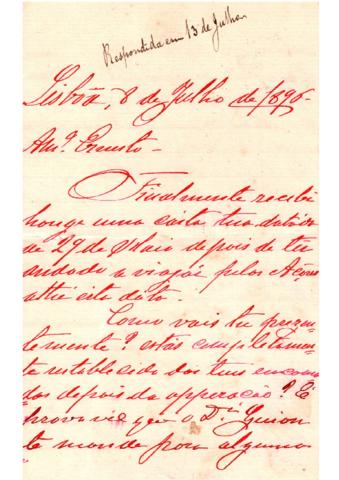 Respondida em 13 de Julho
Lisbôa, 8 de Julho de 1896
Am.º Ernesto
Finalmente recebi
honge uma carta tua datada
de 29 de Maio depois de ter
andado a viajar pelos Açores
athé esta data.
Como vais tu prezen-
temente? estás completamen-
te restabelecido dos teus encomo-
dos depois da opperação? É
provavel que o Dr.
te mande para alguma